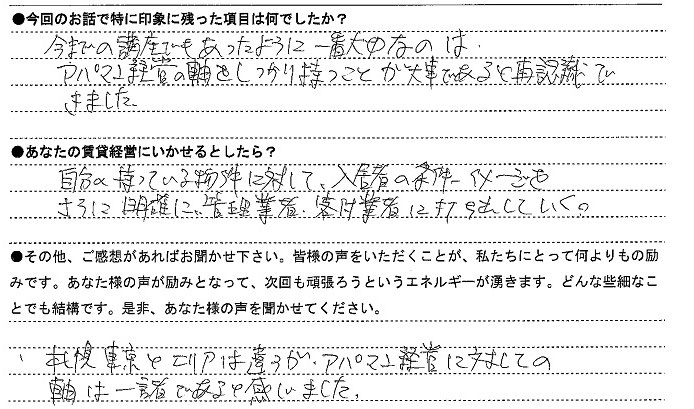 ●今回のお話で特に印象に残った項目は何でしたか？
今までの講座でもあったように一番大切なのは、
アパマン経営の軸をしっかり持つことが大事であると再認識で
きました。
●あなたの賃貸経営にいかせるとしたら？
自分の持っている物件に対して、入居者の条件、イメージを
さらに明確に、管理業者、客付業者に打ち出していく。
●その他、ご感想があればお聞かせ下さい。皆様の声をいただくことが、私たちにとって何よりもの励
みです。あなた様の声が励みとなって、次回も頑張ろうというエネルギーが湧きます。どんな些細なこ
とでも結構です。是非、あなた様の声を聞かせてください。
札幌、東京とエリアは違うが、アパマン経営に対しての
軸は一諸であると感じました。